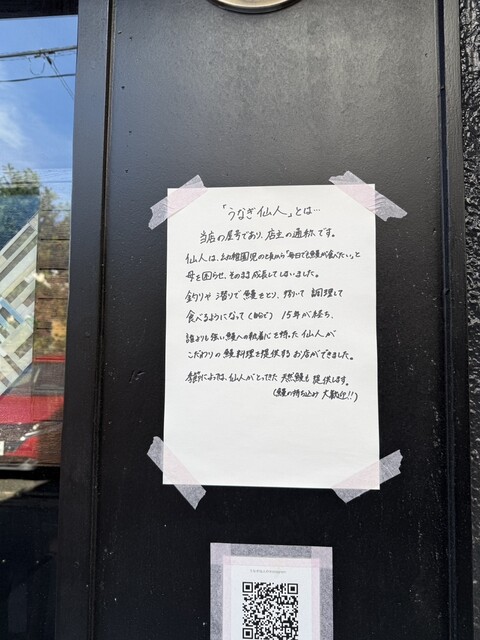 「うなぎ仙人」とは…
当店の屋号であり、店主の通称です。
仙人は、幼稚園児の頃から「毎日でも鰻が食べたい」と
母を困らせ、そのまま成長してしまいました。
釣りや潜りで鰻をとり、捌いて調理して
食べるようになって(自分で) 15年が経ち、
誰よりも強い鰻への執着心を持った仙人が
こだわりの鰻料理を提供するお店ができました。
季節によっては、仙人がとってきた天然鰻も提供します。
(鰻の持ち込み大歓迎!!)